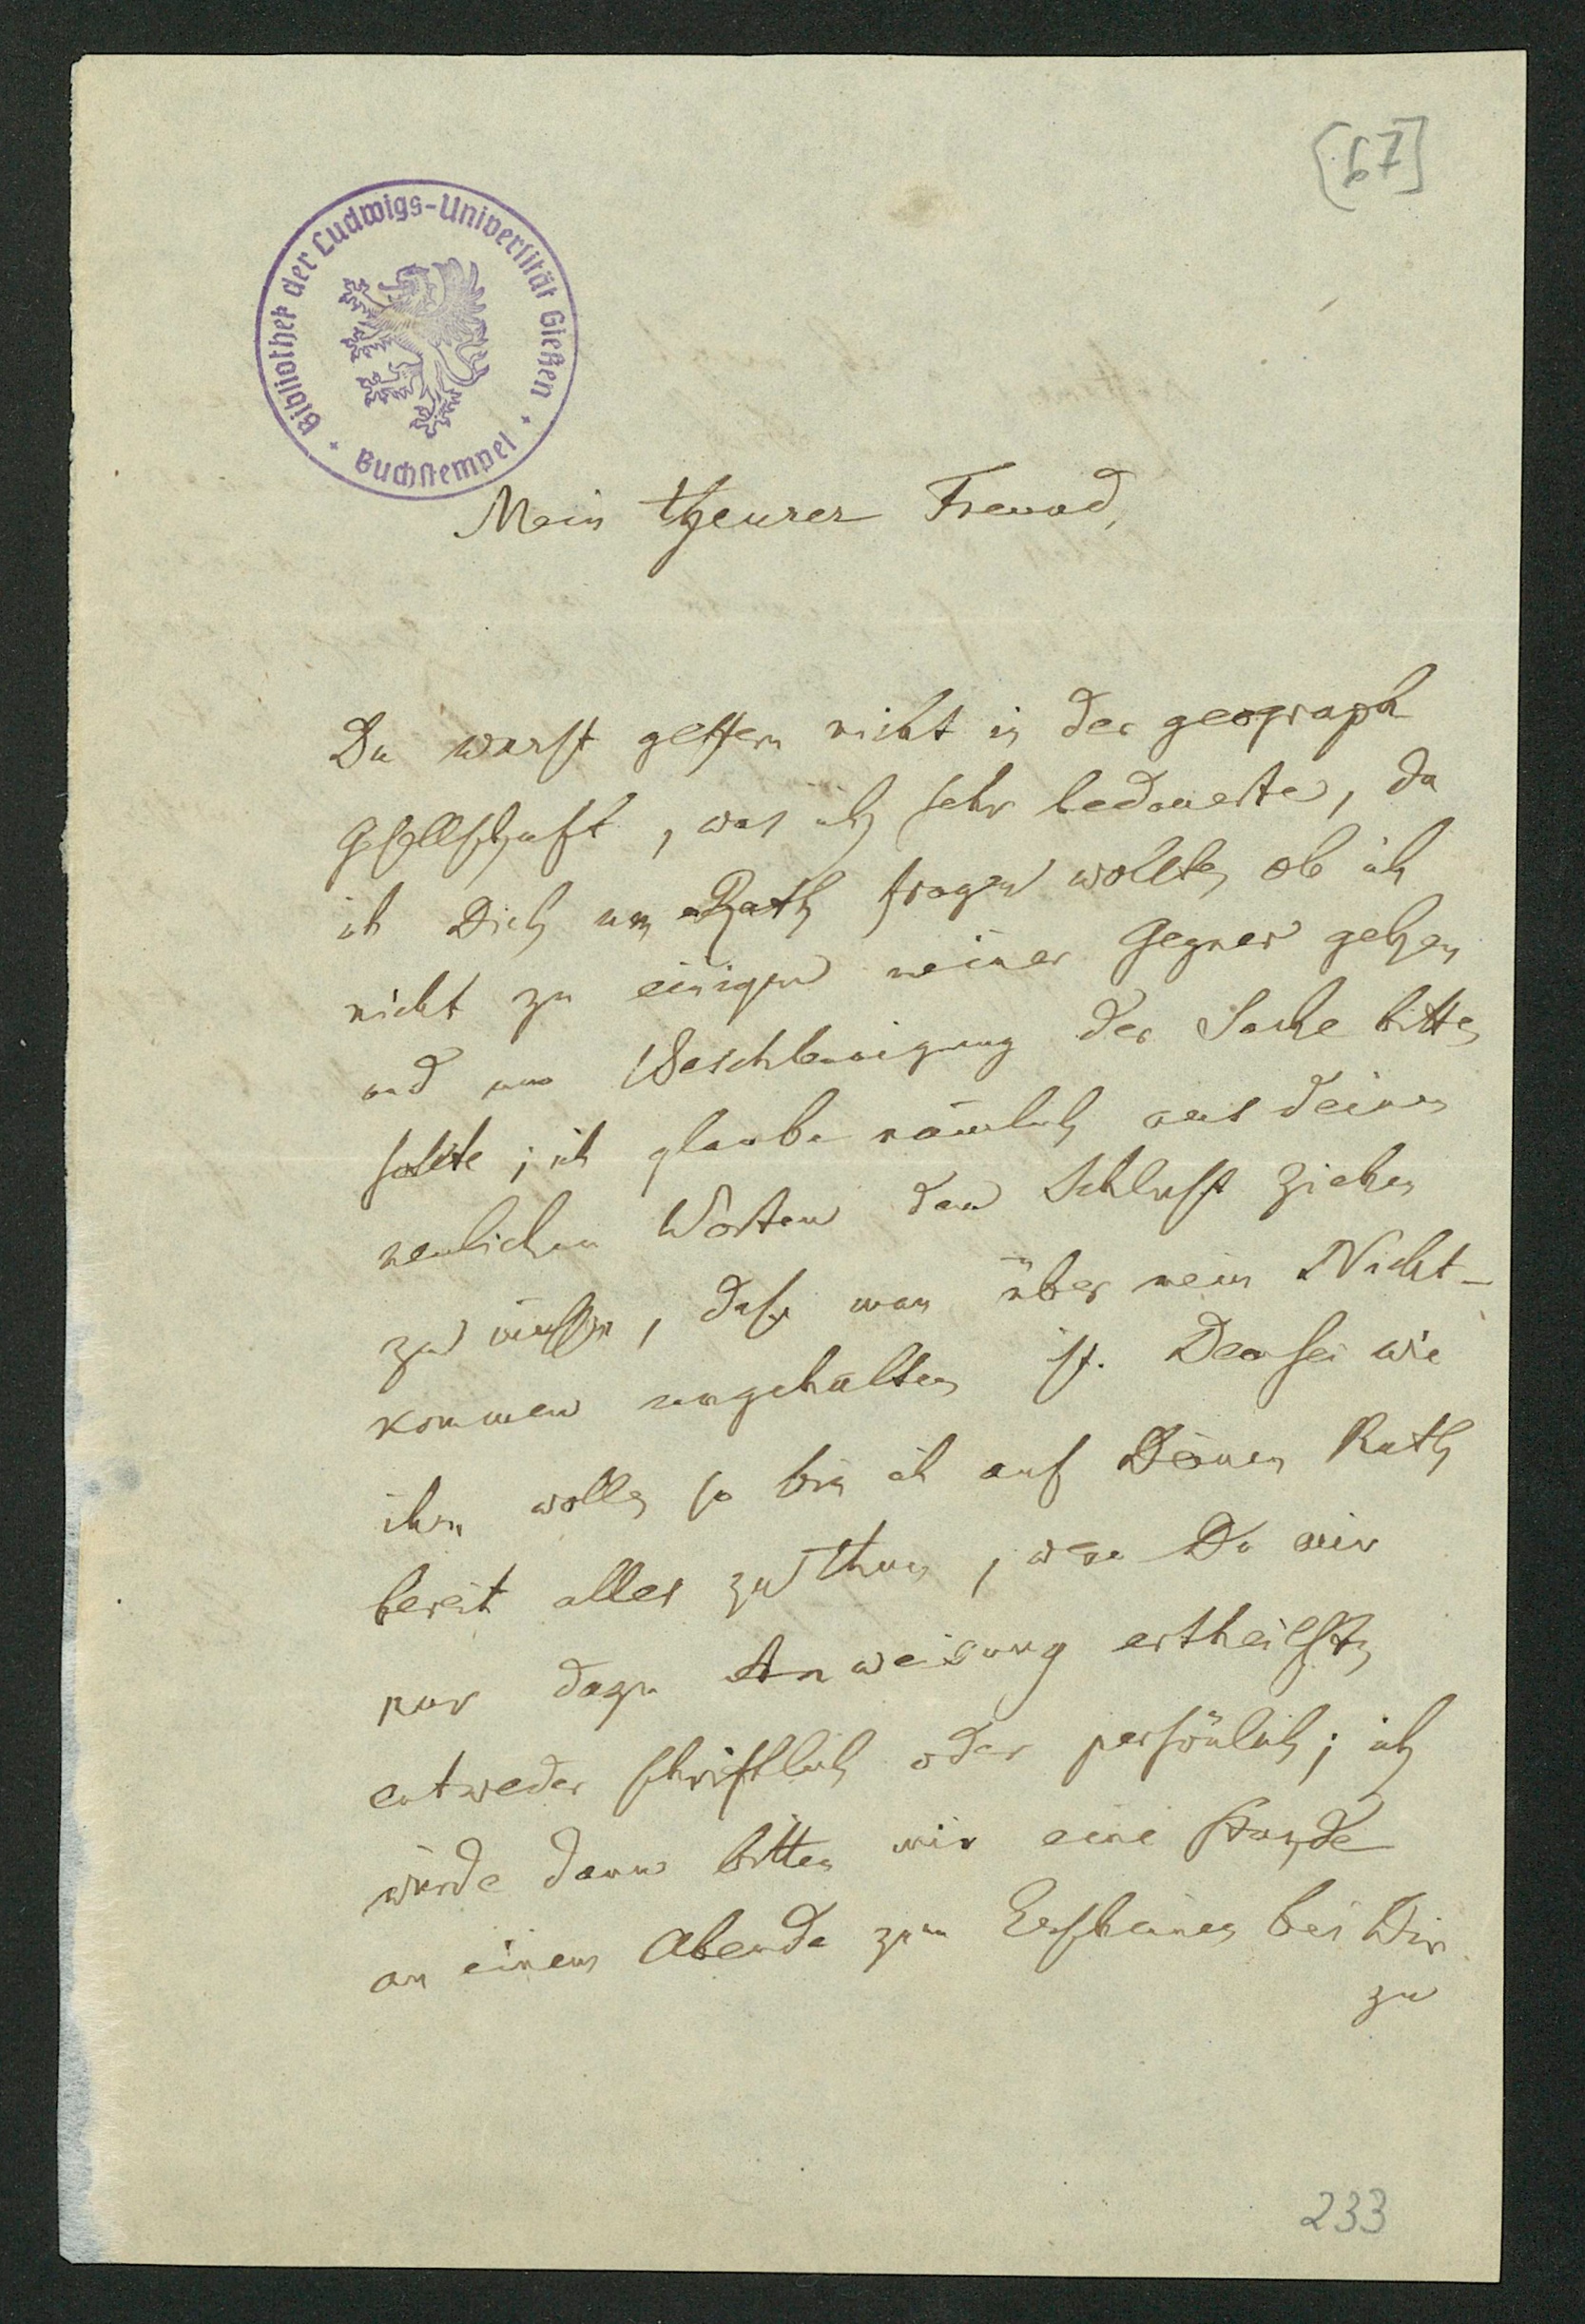 [67]
Bibliothek der Ludwigs-Universität Gießen
Buchstempel
Mein theurer Freund,
Du warst gestern nicht in der geograph
Gesellschaft, was ich sehr bedauerte, da
ich Dich um Rath fragen wollte, ob ich
nicht zu einigen meiner Gegner gehen
und um Beschleunigung der Sache bitten
sollte; ich glaube nämlich aus deinen
neulichen Worten den Schluss ziehen
zu müssen, dass man über mein Nicht-
kommen ungehalten ist. Dem sei wie
ihm wolle, so bin ich auf Deinen Rath
bereit alles zu thun, wenn Du mir
nur dazu Anweisung ertheilst,
entweder schriftlich oder persönlich; ich
würde dann bitten mir eine Stunde
an einem Abende zum Erscheinen bei Dir
zu
233